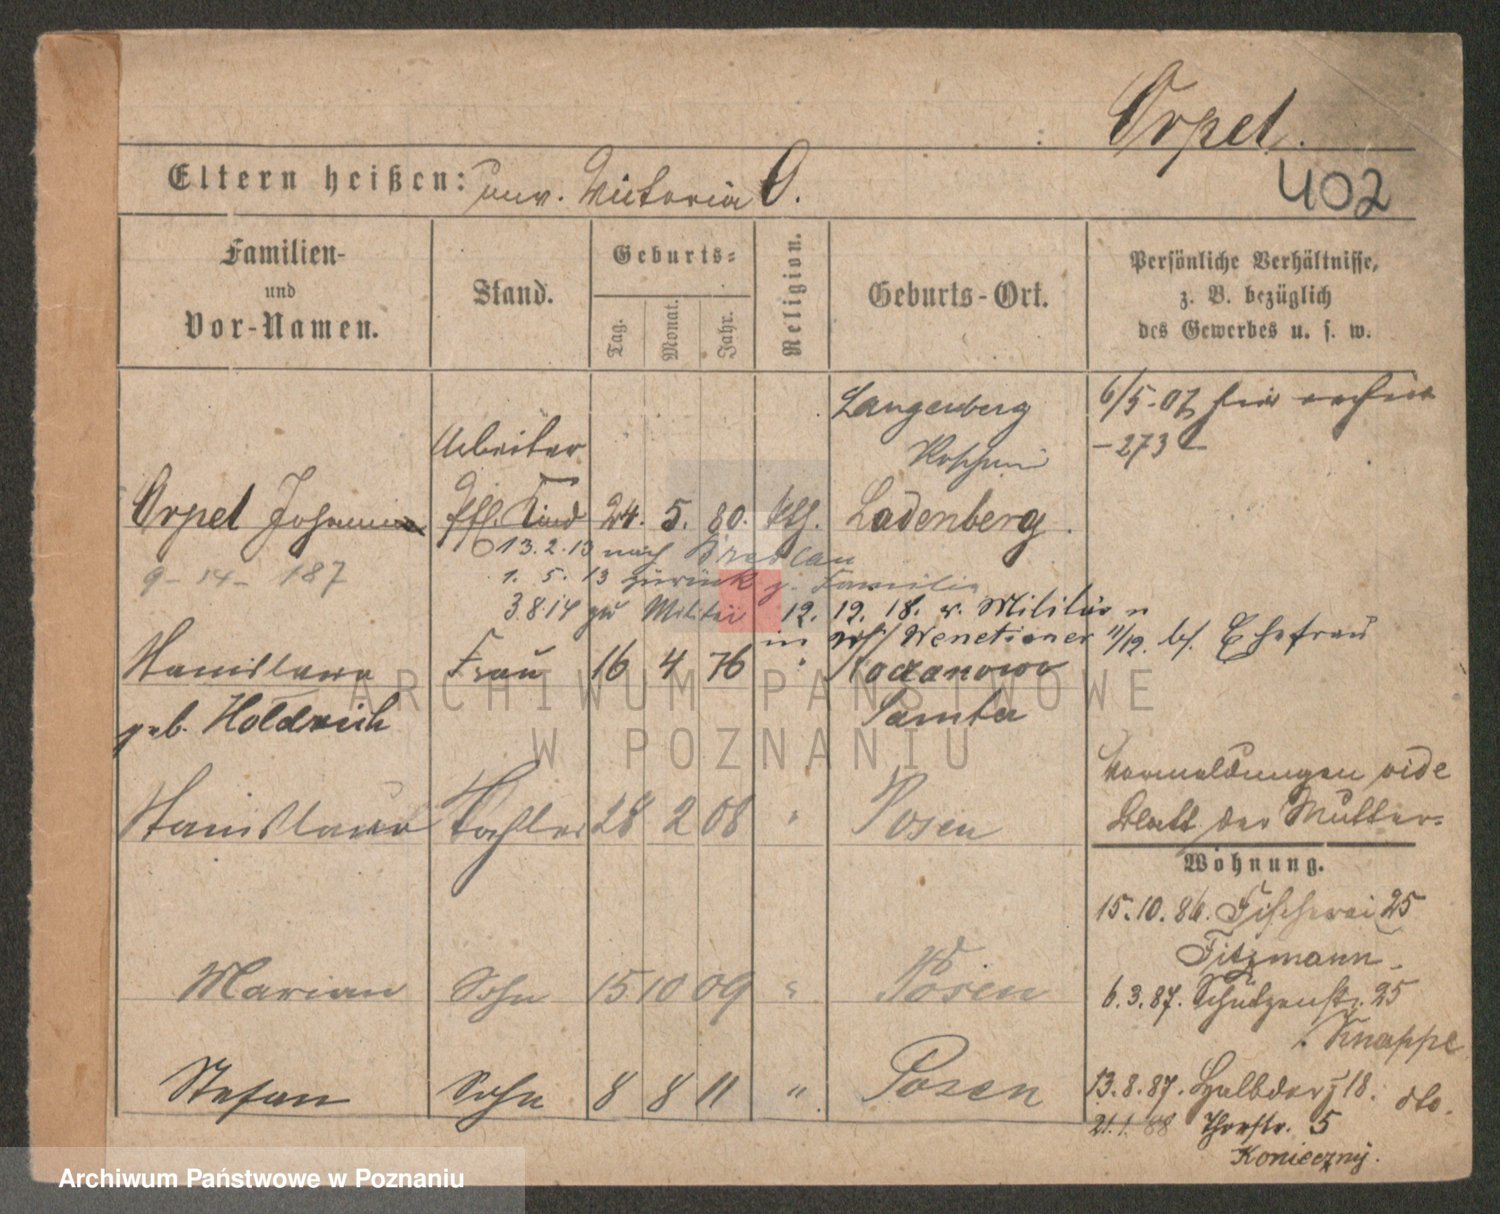 Orpel.
402
Eltern heißen: unv. Victoria O.
Familien- und Vor-Namen.
Stand.
Geburts-
Tag.
Monat.
Jahr.
Religion.
Geburts-Ort.
Persönliche Verhältnisse,
z. B. bezüglich
des Gewerbes u. s. w.
Langenberg
6/5.07
Arbeiter
- 273 -
Orpel Johann Kind 24. 5. 80. kth. Ladenberg.
13.2.13 nach Breslau
9 - 14 - 187
1. 5. 13 zurück z. Familie
3 8 14 zu Militär 12. 12. 18. v. Militär n
in Venetianer 11/12. bf. Ehefrau
Stanislawa Frau 16 4 76 "
geb. Holdrich Samter
Vermeldungen vide
Blatt der Mutter-
Stanislawa Tochter 28 2 08 " Posen
Wohnung.
15.10.86. Fischerei 25
Fitzmann.
Marian Sohn 15 10 09 " Posen
6.3.87. Schützenstr. 25
Knappe
Stefan Sohn 8 8 11 " Posen
13.8.87. Halbdorf 18. dto.
21.1.88 Thorstr. 5
Konieczny.
ARCHIWUM PAŃSTWOWE
W POZNANIU
Archiwum Państwowe w Poznaniu